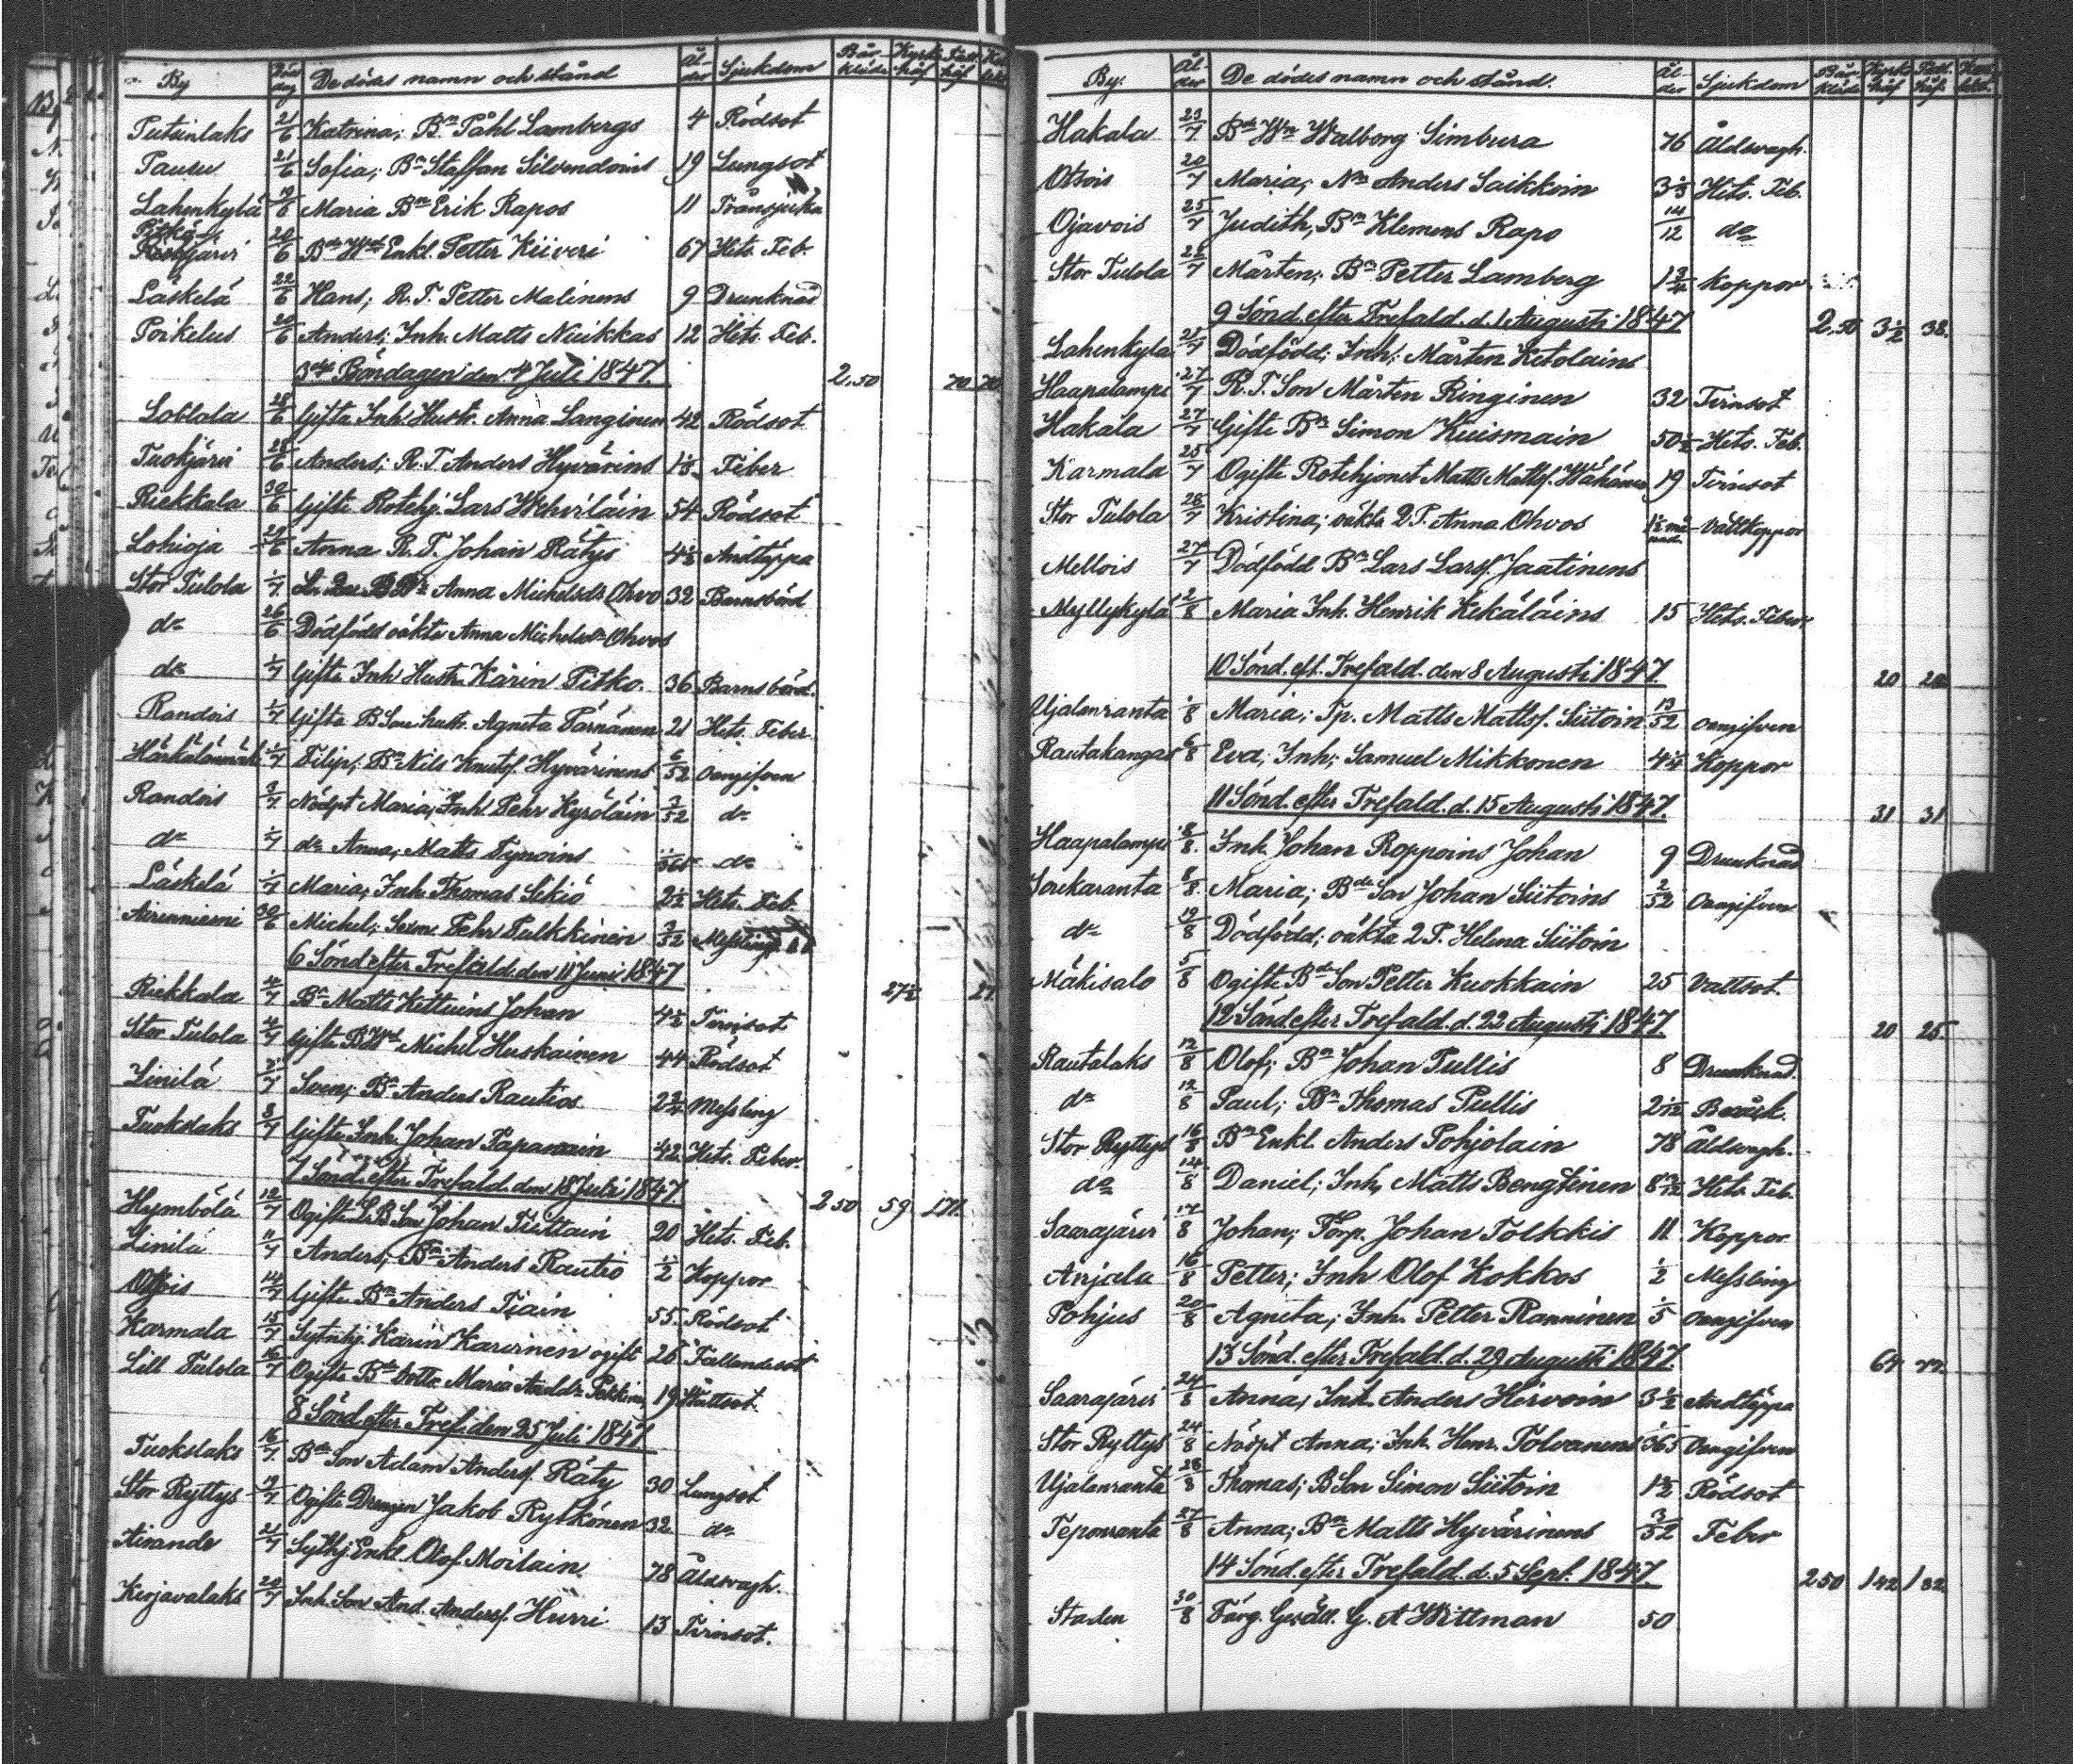 By Död dag De dödes namn och stånd Ål- der Sjukdom Bår kläde Kyrk håf
Putsinlaks 21/6 Katrina; Bm Påhl Lambergs 4 Rödsot
Tausu 21/6 Sofia; Bm Staffan Silvendoins 19 Lungsot
Lahenkylä 19/6 Maria Bm Erik Rapos 11 Trånsjuka
Pitkäjärvi 20/6 Enkl. Petter Kiiveri 67 Hets. Feb.
Läskelä 22/6 Hans; R. T. Petter Malinens 9 Drunknad
Poikelus 20/6 Anders; Inh. Matts Nuikkas 12 Hets. Feb.
3dje Böndagen den 4 Juli 1847. 2.50 70 70
28/6 Gifta Inh. Hustr. Anna Langinen 42 Rödsot
Tuokjärvi 28/6 Anders; R. T. Anders Hyvärins Feber
Riekkala 30/6 Gifte Rotehj. Lars Wehviläin 54 Rödsot
Lohioja 28/6 Anna R. T. Johan Rätys 4 1/2 Andtäppa
Stor Tulola 1/7 Anna Michelsdr Ohvo 32 Barnsbörd
do 26/6 Dödfödd oäkta Anna Michelsdr Ohvos
do 1/7 Gifta Inh Hustr. Karin Pitko. 36 Barnsbörd.
Randois 1/7 Gifta B Son hustr. Agneta Pärnänen 21 Hets. Feber.
1/7 Filip; Bm Nils Knutsf. Hyvärinens 6/52 Oangifven
Randois 3/7 Nödpt Maria; Inh. Pehr Kyröläin 3/52 do
do 1/7 do Anna; Matts Tynoins do
Läskelä 1/7 Maria; Inh. Thomas Sikiö 2 1/2 Hets. Feb.
Airenniemi 30/6 Michel; Pehr Pulkkinen 3/52 Messling
6 Sönd efter Trefald. den 11 Juni 1847 27 1/2 27
Riekkala 4/7 Bm Matts Kettuins Johan 4 1/2 Tvinsot
Stor Tulola 4/7 Gifte Michel Huskainen 44 Rödsot
Linilä 8/7 Sven; Bm Anders Rautios 2 3/4 Messling
Tuokslaks 8/7 Gifte Inh. Johan Papanain 42 Hets. Feber.
7 Sönd. efter Trefald. den 18 Juli 1847. 2 50 59 171.
Hymbölä 12/7 Ogifte Johan Tiittain 20 Hets. Feb.
Linilä 11/7 Anders; Bm Anders Rautio 1/2 Koppor
Otsois 14/7 Gifte Bm Anders Tiain 55. Rödsot
Karmala 15/7 Sytnhj. Karin Karirnen ogift 26 Fallandesot
Lill Tulola 16/7 Ogifta Bde Dottr. Maria Andsdr. Pekkinen 19 Wattsot.
8 Sönd. efter Tref. den 25 Juli 1847
Tuokslaks 16/7 Bde Son Adam Andersf. Räty 30 Lungsot
Stor Ryttys 19/7 Ogifte Drengen Jakob Rytkönen 32 do
Airande 21/7 Sythj. Enkl. Olof Moilain 78 Ålderdomsvagh.
Kirjavalaks 20/7 Inh. Son And. Andersf. Hurri 13 Tvinsot.
By. Ål- der De dödes namn och stånd. Ål- der Sjukdom Bår kläde Kyrk håf
Hakala 23/7 Walborg Simbura 76 Åldsvagh.
Otsois 20/7 Maria; Nm Anders Saikkoin Hets. Feb.
Ojavois 25/7 Judith, Bm Klemens Rapo /12 do
Stor Tulola 26/7 Mårten; Bm Petter Lamberg 1 3/4 Koppor
9 Sönd. efter Trefald. d. 1 Augusti 1847 2.50 3 1/2 38.
Lahenkylä 27/7 Dödfödd; Inh. Mårten Ketolains
Haapalampi 27/7 R. T. Son Mårten Ringinen 32 Tvinsot
Hakala 27/7 Gifte Bm Simon Kuismain 50 1/2 Hets. Feb.
Karmala 25/7 Ogifte Rotehjonet Matts Mattsf. Wähänen 19 Tvinsot
Stor Tulola 28/7 Kristina; oäkta Anna Ohvos Vattkoppor
Mellois 27/7 Dödfödd Bm Lars Larsf. Jaatinens
Myllykylä 2/8 Maria Inh. Henrik Kekäläins 15 Hets. Feber.
10 Sönd. eft. Trefald. den 8 Augusti 1847. 20 20
Ujalanranta 1/8 Maria; Tp. Matts Mattsf. Siitoin 13/52 Oangifven
Rautakangas 6/8 Eva; Inh; Samuel Mikkonen 4 1/4 Koppor
11 Sönd. efter Trefald. d. 15 Augusti 1847. 31 31
Haapalampi 8/8 Inh. Johan Roppoins Johan 9 Drunknad
Sorekaranta 8/8 Maria; Bde Son Johan Siitoins 2/52 Oangifven
do 19/8 Dödfödd; oäkta Helena Siitoin
Mäkisalo 5/8 Ogifte Bde Son Petter Kuokkain 25 Vattsot.
12 Sönd. efter Trefald. d. 22 Augusti 1847. 20 25.
Rautalaks 12/8 Olof; Bm Johan Pullis 8 Drunknad.
do 12/8 Paul; Bm Thomas Pullis
Stor Ryttys 16/8 Bm Enkl. Anders Pohjolain 78 Åldsvagh.
do 14/8 Daniel; Inh. Matts Bengtinen Hets. Feb.
Saarajärvi 17/8 Johan; Torp. Johan Tolkkis 11 Koppor
Anjala 16/8 Petter; Inh Olof Kokkos 1/2 Messling
Pohjus 20/8 Agneta; Inh. Petter Ranninen 1/5 Oangifven
13 Sönd. efter Trefald. d. 29 Augusti 1847. 64 77.
Saarajärvi 24/8 Anna; Inh. Anders Hirvoin 3 1/2 Andtäppa
Stor Ryttys 24/8 Nödpt Anna; Inh. Henr. Polvanens 1/365 Oangifven
Ujalanranta 28/8 Thomas; B Son Simon Siitoin 1 1/2 Rödsot
Teponranta 27/8 Anna; Bm Matts Hyvärinens 3/52 Feber
14 Sönd. efter Trefald. d. 5 Sept. 1847. 2 50 142 132
Staden 30/8 Färg. Gesäll. G. A Wittman 50